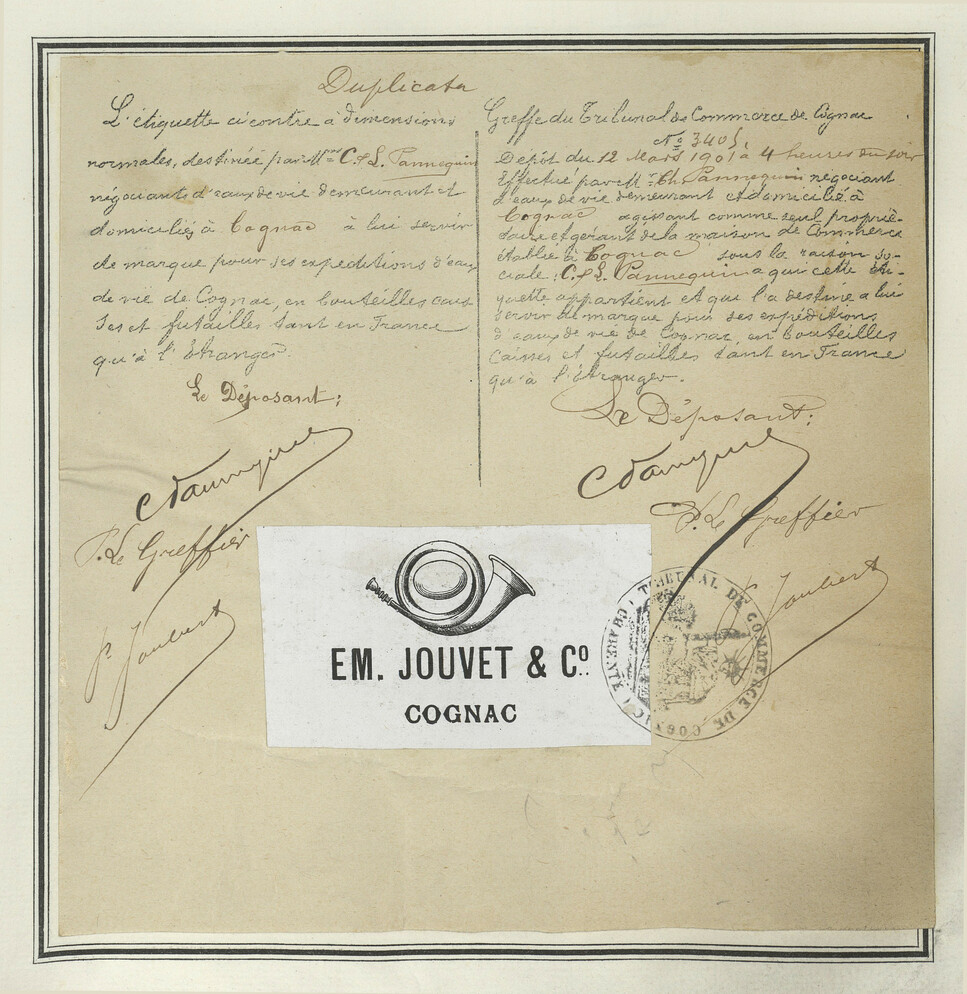 Duplicata
L'étiquette ci contre à dimensions
normales, destinée par M^rs C. & L. Pannequin
négociants d'eaux de vie demeurant et
domiciliés à Cognac à lui servir
de marque pour ses expéditions d'eaux
de vie de Cognac, en bouteilles cais
ses et futailles tant en France
qu'à l'Etranger.
Le Déposant:
P. Le Greffier
P. Joubert
Greffe du Tribunal de Commerce de Cognac
N° 3405.
Dépôt du 12 Mars 1901 à 4 heures du soir
Effectué par M^r Ch. Pannequin négociant
d'eaux de vie demeurant et domicilié à
Cognac agissant comme seul proprié-
taire et gérant de la maison de Commerce
établie à Cognac sous la raison so-
ciale: C. & L. Pannequin a qui cette éti-
quette appartient et qui l'a destiné a lui
servir de marque pour ses expéditions
d'eaux de vie de Cognac, en bouteilles
caisses et futailles tant en France
qu'à l'étranger.
Le Déposant:
P. Le Greffier
P. Joubert
EM. JOUVET & C°.
COGNAC
TRIBUNAL DE COMMERCE DE COGNAC (CHARENTE)